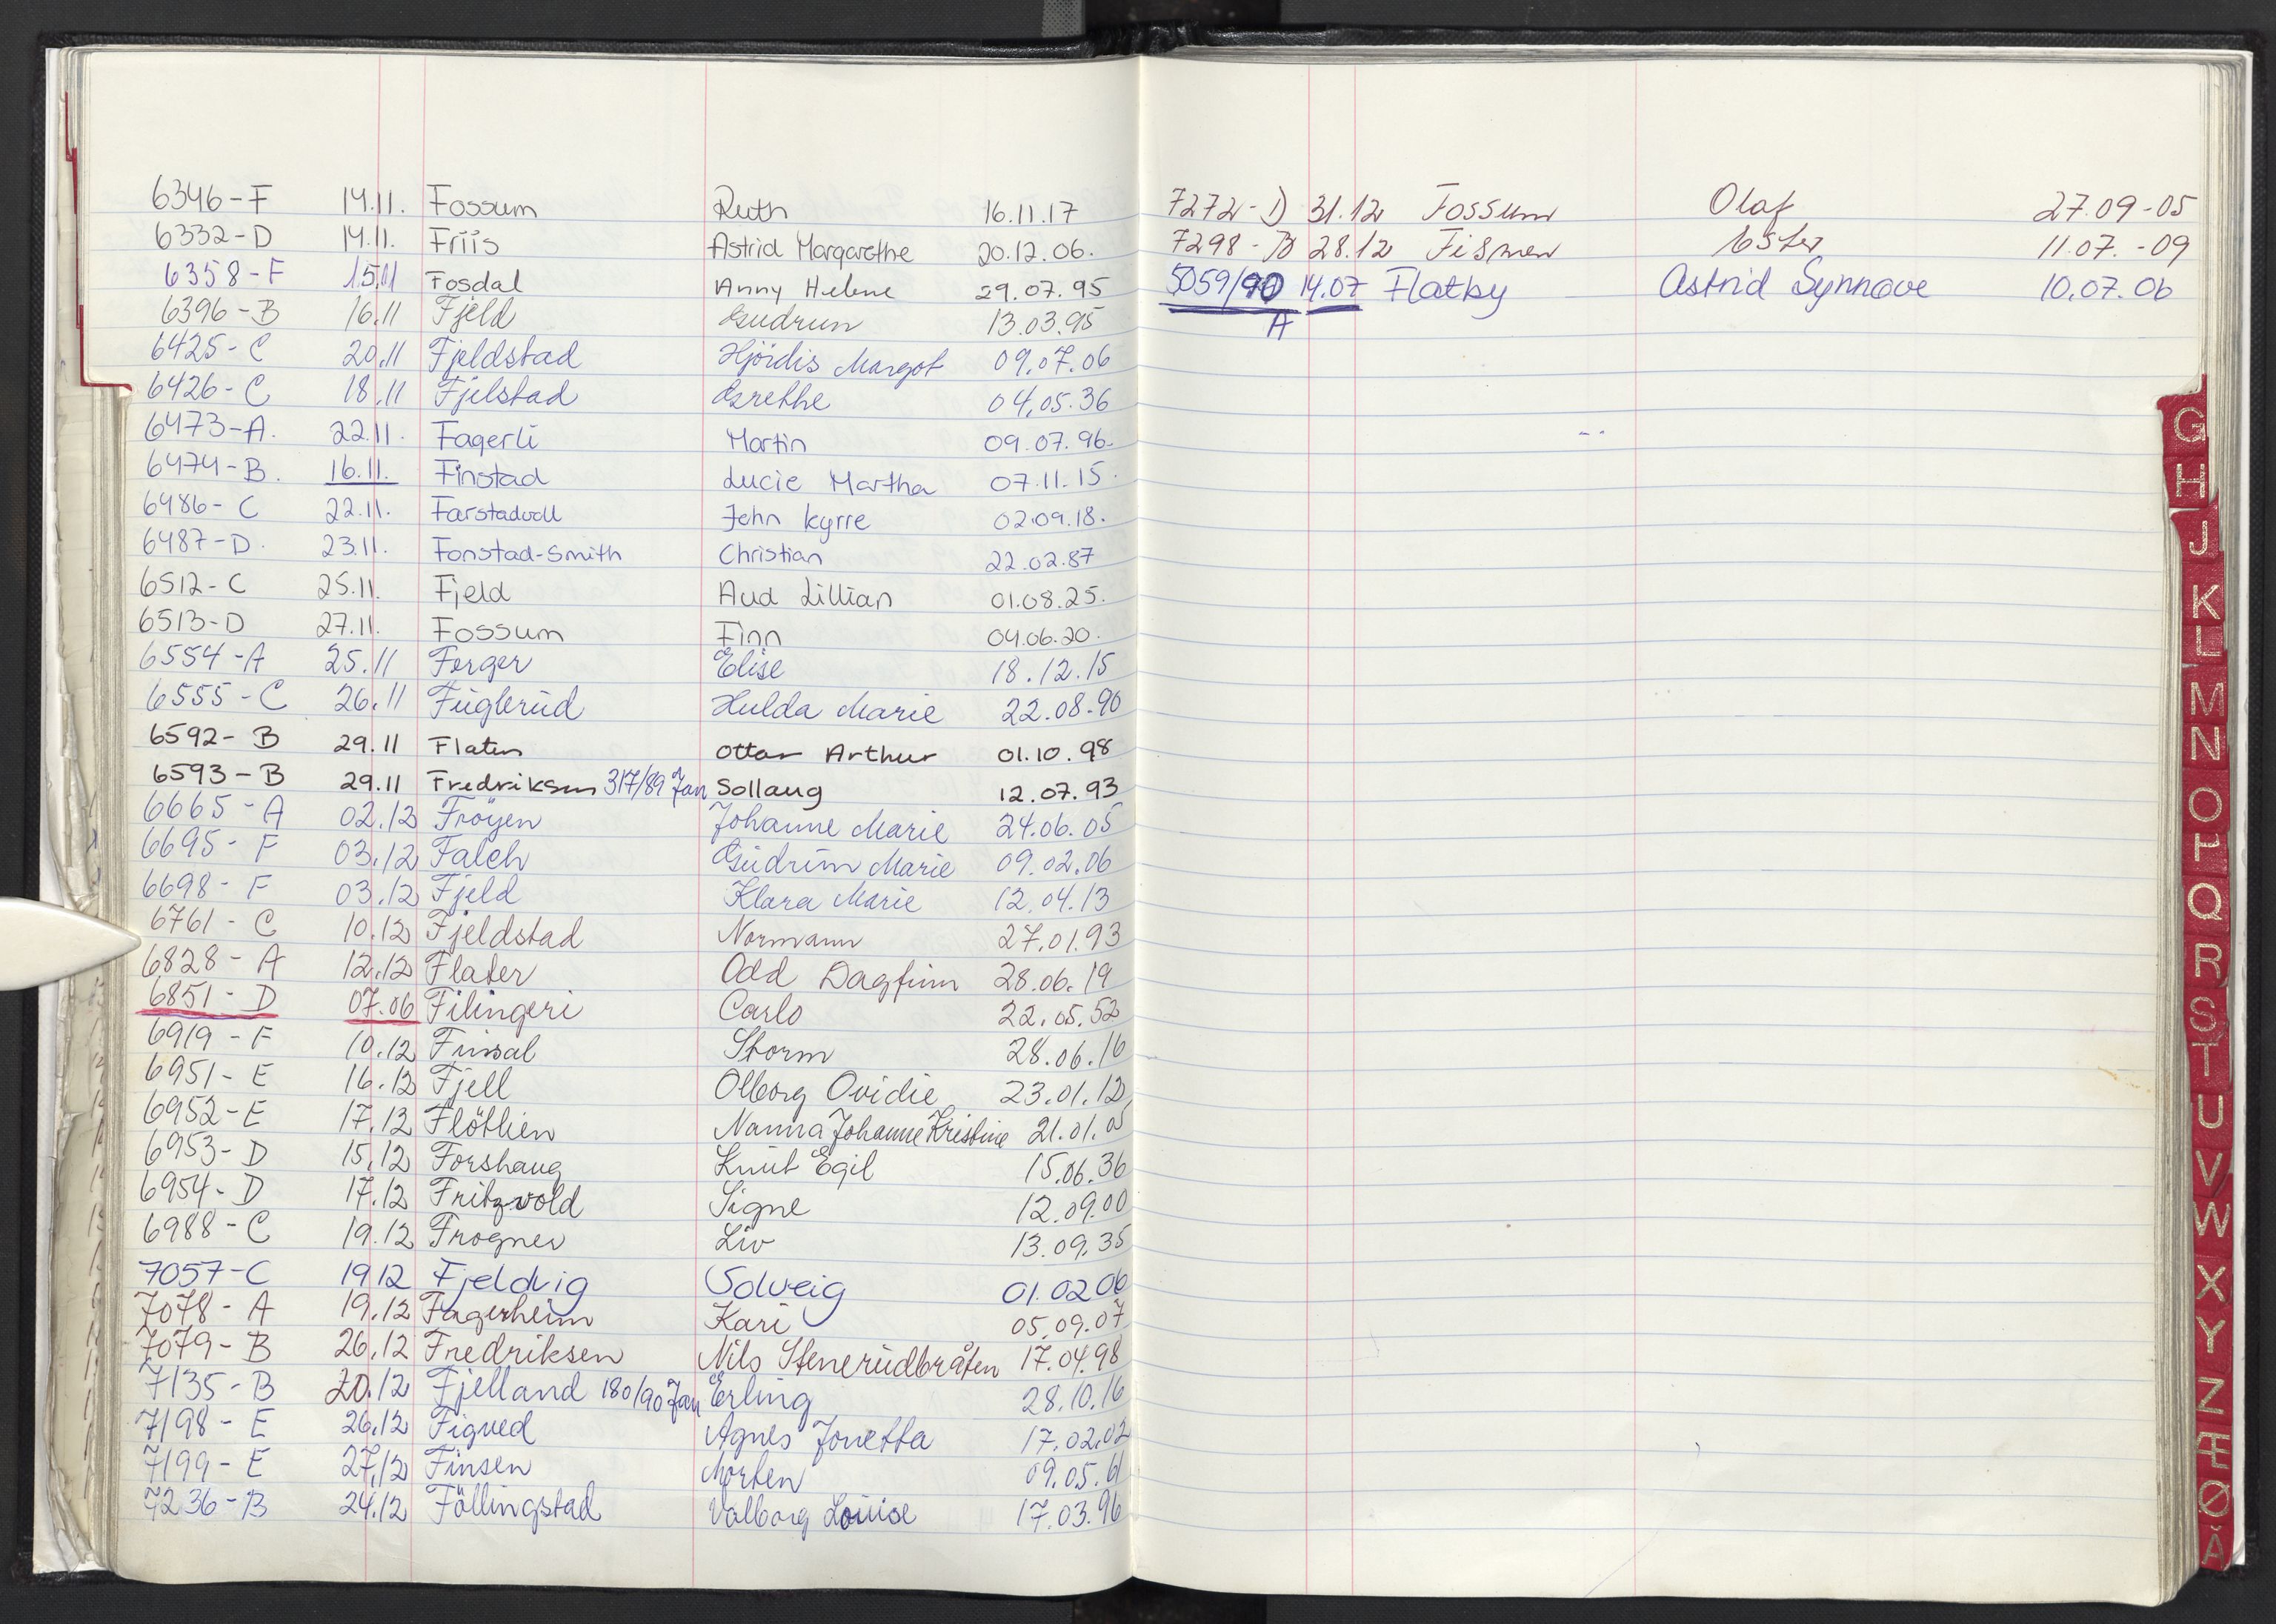 6346-F 14.11. Fossum Ruth 16.11.17
6332-D 14.11. Friis Astrid Margarethe 20.12.06.
6358-F 15.11 Fosdal Anny Helene 29.07.95
6396-B 16.11 Fjeld Gudrun 13.03.95
6425-C 20.11 Fjeldstad Hjördis Margot 09.07.06
6426-C 18.11 Fjelstad Grethe 04.05.36
6473-A. 22.11. Fagerli Martin 09.07.96.
6474-B. 16.11. Finstad Lucie Martha 07.11.15.
6486-C 22.11. Farstadvoll John Kyrre 02.09.18.
6487-D. 23.11. Fonstad-Smith Christian 22.02.87
6512-C 25.11. Fjeld Aud Lillian 01.08.25.
6513-D 27.11. Fossum Finn 04.06.20.
6554-A 25.11 Ferger Elise 18.12.15
6555-C 26.11 Fuglerud Hulda Marie 22.08.90
6592-B 29.11 Flaten Ottar Arthur 01.10.98
6593-B 29.11 Fredriksen 317/89 Jan Sollaug 12.07.93
6665-A 02.12 Fröyen Johanne Marie 24.06.05
6695-F 03.12 Falch Gudrun Marie 09.02.06
6698-F 03.12 Fjeld Klara Marie 12.04.13
6761-C 10.12 Fjeldstad Normann 27.01.93
6828-A 12.12 Flater Odd Dagfinn 28.06.19
6851-D 07.06 Filingeri Carlo 22.05.52
6919-F 10.12 Finsal Storm 28.06.16
6951-E 16.12 Fjell Olborg Ovidie 23.01.12
6952-E 17.12 Flöthen Nanna Johanne Kristine 21.01.05
6953-D 15.12 Forshaug Knut Egil 15.06.36
6954-D 17.12 Fritzvold Signe 12.09.00
6988-C 19.12 Frogner Liv 13.09.35
7057-C 19 12 Fjeldvig Solveig 01.02 06
7078-A 19.12 Fagerheim Kari 05.09.07
7079-B 26.12 Fredriksen Nils Stenerudbråten 17.04.98
7135-B 20.12 Fjelland 180/90 Jan Erling 28.10.16
7198-E 26.12 Figved Agnes Jonetta 17.02.02
7199-E 27.12 Finsen Morten 09.05.61
7236-B 24.12 Föllingstad Valborg Louise 17.03.96
7272-D 31.12 Fossum Olaf 27.09-05
7298-B 28.12 Fismen 11.07.-09
5059/90 14.07 Flatby Astrid Synnøve 10.07.06
A
G
H
J
K
L
M
N
O
P
Q
R
S
T
U
V
W
X
Y
Z
Æ
Ø
Å